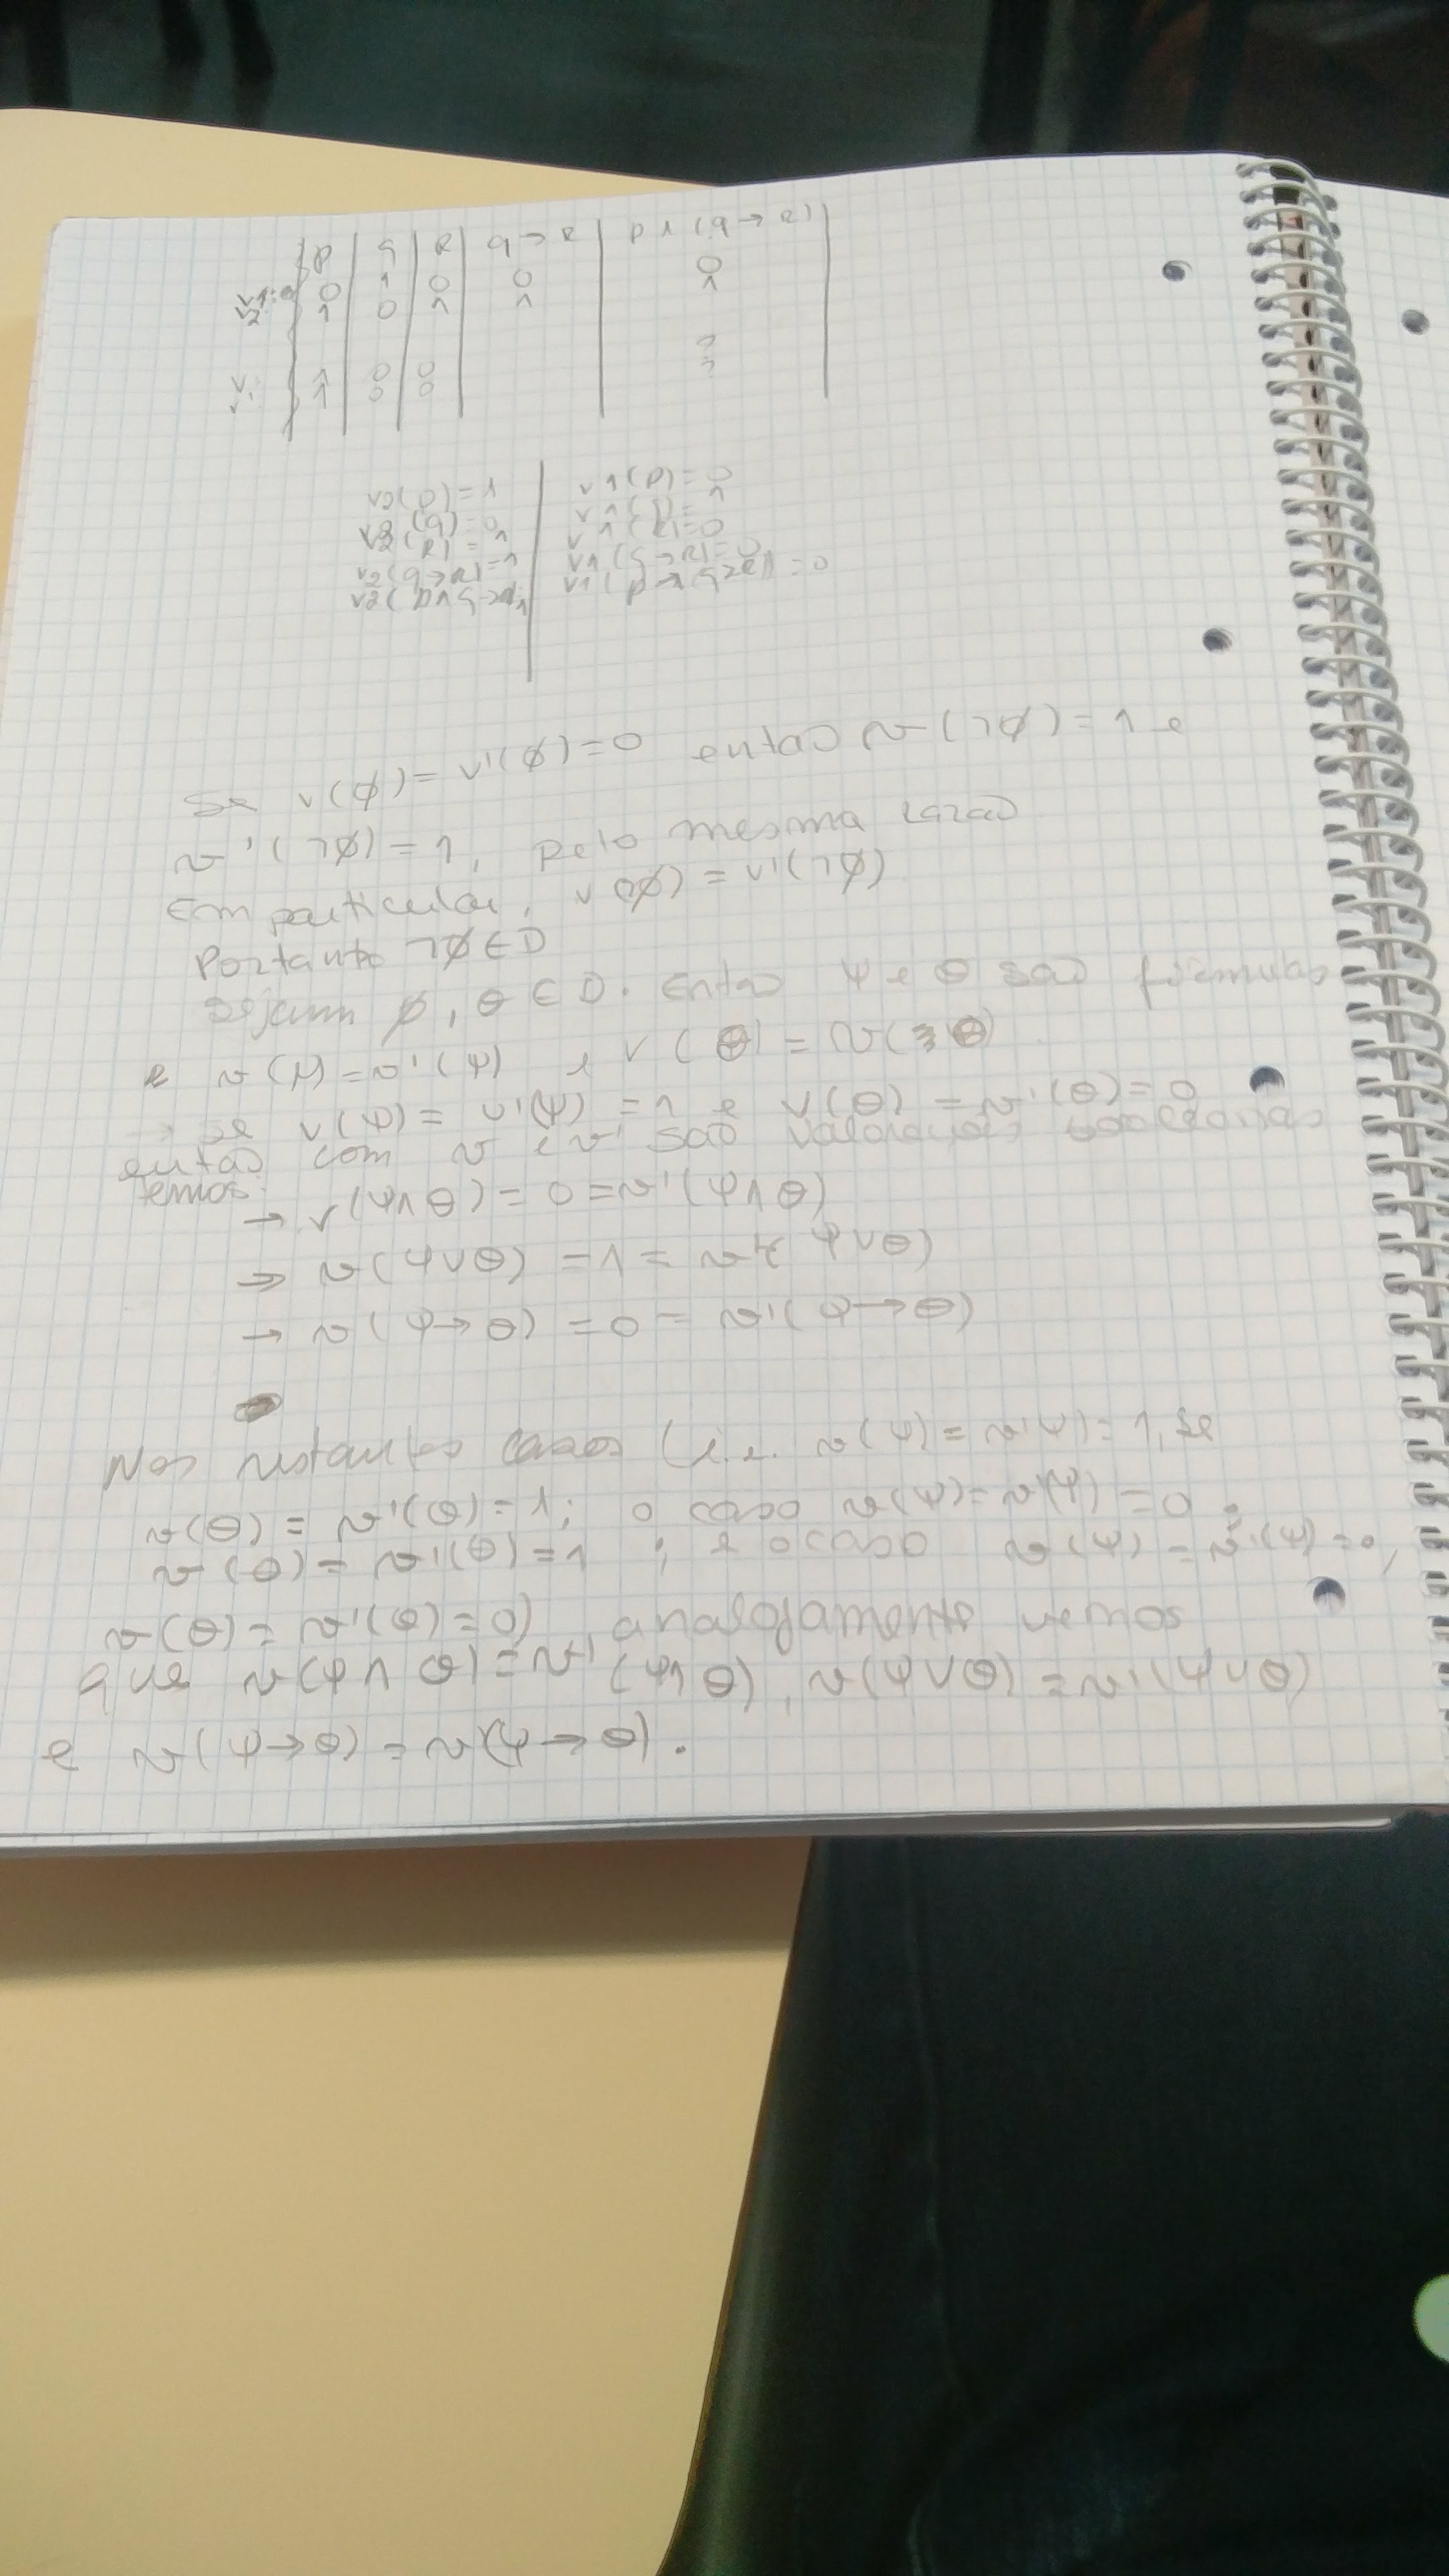 p | q | R | q → R | p ∧ (q → R)
v1: 0 | 1 | 0 | 0 | 0
v2: 1 | 0 | 1 | 1 | 1
?
v: 1 | 0 | 0 | ?
v: 1 | 0 | 0
v2(p) = 1 | v1(p) = 0
v2(q) = 0 | v1( ) = 1
v2(R) = 1 | v1(R) = 0
v2(q→R) = 1 | v1(q→R) = 0
v2(p∧q→R) 1 | v1(p→∧q→R) = 0
Se v(φ) = v'(φ) = 0 entao v(¬φ) = 1 e
v'(¬φ) = 1, pelo mesma razao
Em particular, v(¬φ) = v'(¬φ)
Portanto ¬φ ∈ D
Sejam φ, θ ∈ D. Entao ψ e θ sao formulas
e v(ψ) = v'(ψ) e v(θ) = v( θ)
→ se v(ψ) = v'(ψ) = 1 e v(θ) = v'(θ) = 0
entao com v e v' sao valorações
temos:
→ v(ψ∧θ) = 0 = v'(ψ∧θ)
→ v(ψ∨θ) = 1 = v' ψ∨θ)
→ v(ψ→θ) = 0 = v'(ψ→θ)
Nos restantes casos (i.e. v(ψ) = v'(ψ) = 1, se
v(θ) = v'(θ) = 1; o caso v(ψ) = v'(ψ) = 0 ;
v(θ) = v'(θ) = 1 ; e o caso v(ψ) = v'(ψ) = 0,
v(θ) = v'(θ) = 0) analogamente vemos
que v(ψ∧θ) = v'(ψ∧θ), v(ψ∨θ) = v'(ψ∨θ)
e v(ψ→θ) = v(ψ→θ).